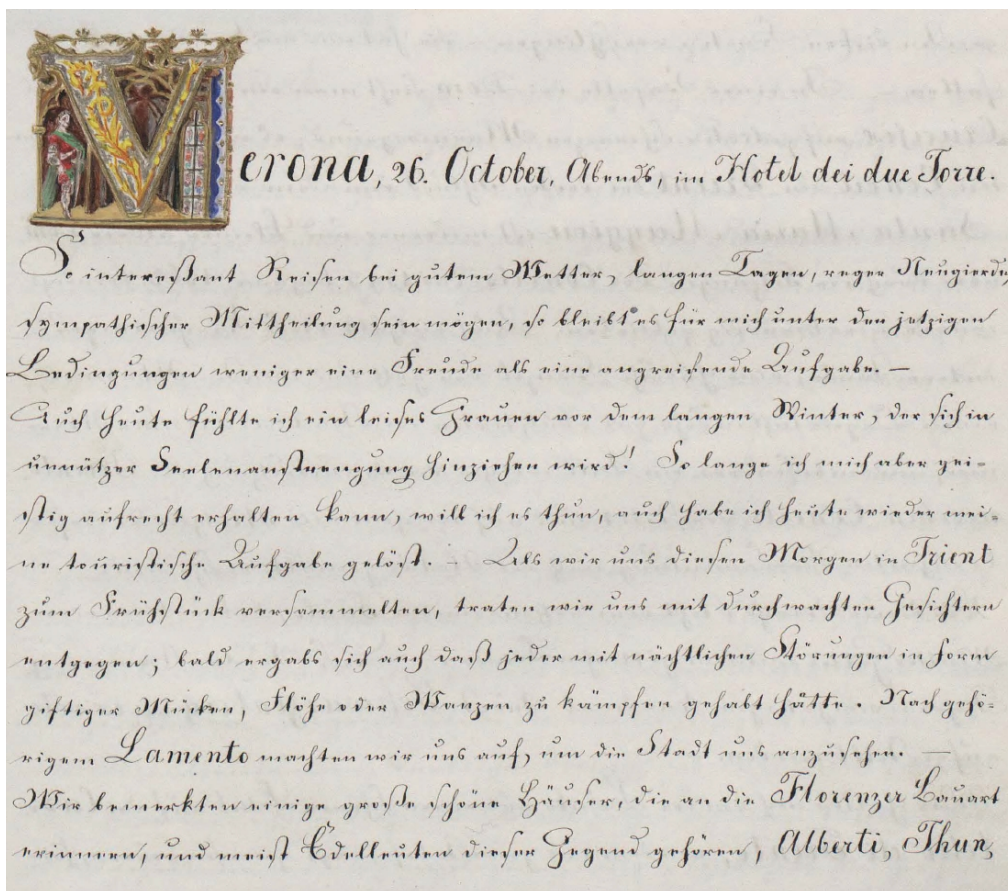 Verona, 26. October, Abends, im Hotel dei due Torre.
So intereßant Reisen bei gutem Wetter, langen Tagen, reger Neugierde,
sympathischer Mittheilung sein mögen, so bleibt es für mich unter den jetzigen
Bedingungen weniger eine Freude als eine angreifende Aufgabe. —
Auch heute fühlte ich ein leises Grauen vor dem langen Winter, der sich in
unnützer Seelenanstrengung hinziehen wird! So lange ich mich aber gei-
stig aufrecht erhalten kann, will ich es thun, auch habe ich heute wieder mei-
ne touristische Aufgabe gelöst. – Als wir uns diesen Morgen in Trient
zum Frühstück versammelten, traten wir uns mit durchwachten Gesichtern
entgegen; bald ergabs sich auch daß jeder mit nächtlichen Störungen in Form
giftiger Mücken, Flöhe oder Wanzen zu kämpfen gehabt hatte. Nach gehö-
rigem Lamento machten wir uns auf, um die Stadt uns anzusehen. —
Wir bemerkten einige große schöne Häuser, die an die Florenzer Bauart
erinnern, und meist Edelleuten dieser Gegend gehören, Alberti, Thun,